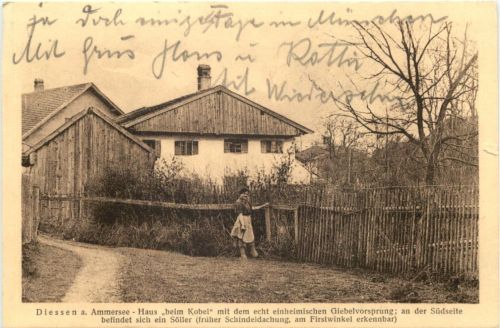 ja doch einige Tage in München
Mit Gruß Hans u Rotta
mit Wiedersehn
Diessen a. Ammersee - Haus „beim Kobel" mit dem echt einheimischen Giebelvorsprung; an der Südseite
befindet sich ein Söller (früher Schindeldachung, am Firstwinkel erkennbar)